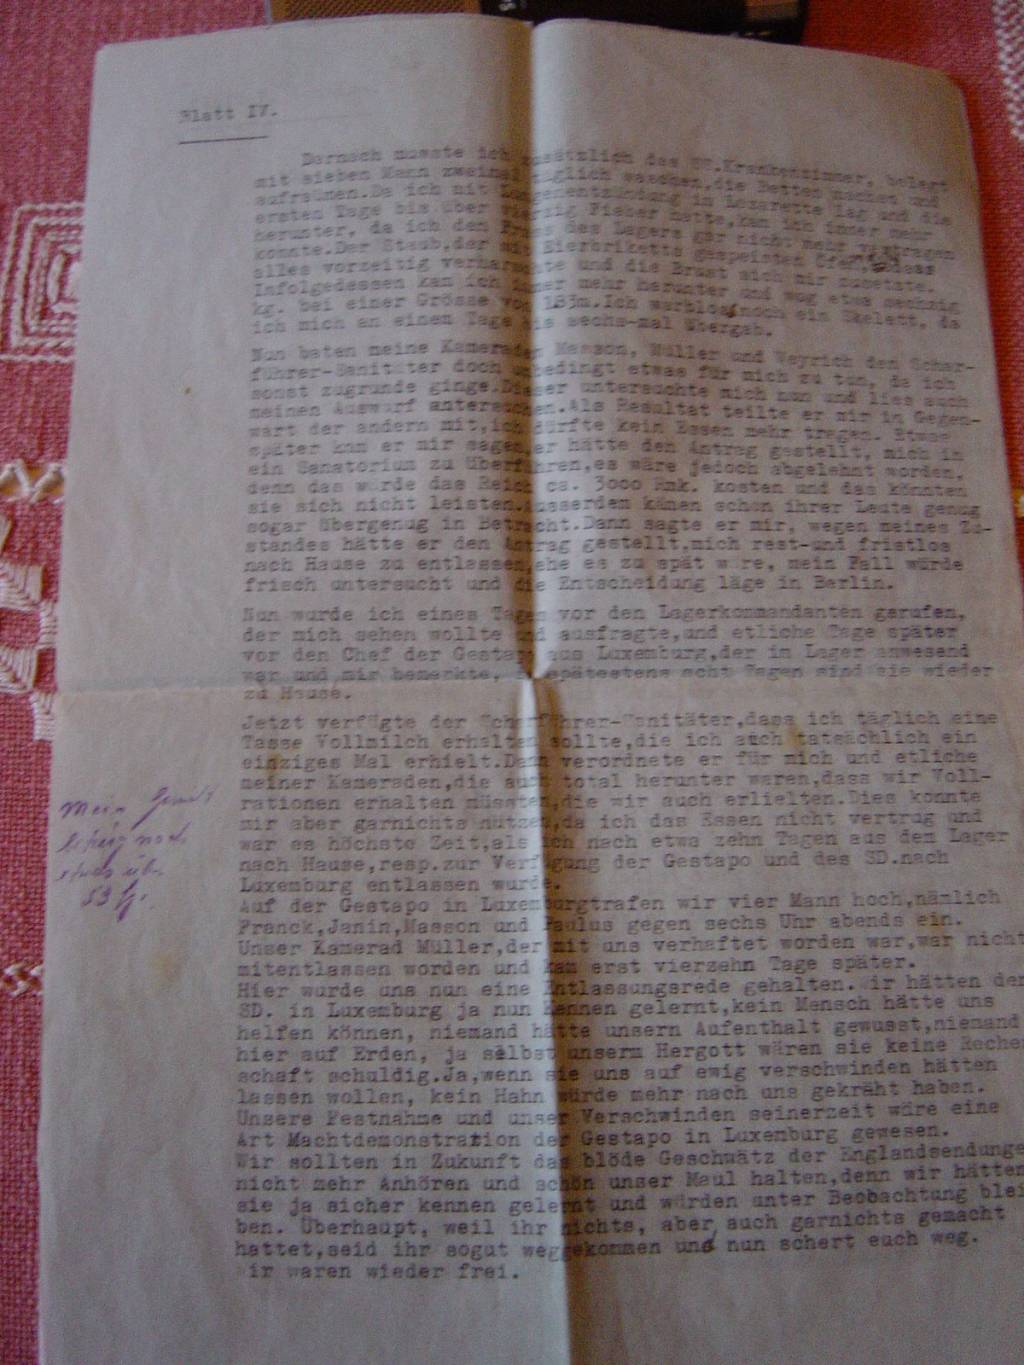 Blatt IV.
Darnach musste ich zusätzlich das Krankenzimmer, belegt
mit sieben Mann zweimal täglich waschen, die Betten machen und
aufräumen.Da ich mit Lungenentzündung im Lazarette lag und die
ersten Tage bis über vierzig Fieber hatte,kam ich immer mehr
herunter, da ich den Frass des Lagers gar nicht mehr vertragen
konnte.Der Staub,der mit Eierbriketts gespeisten Öfen,
alles vorzeitig und die Brust sich mir zusetzte.
Infolgedessen kam ich immer mehr herunter und wog etwa sechzig
kg. bei einer Grösse von 183m.Ich war noch ein Skelett, da
ich mich an einem Tage bis sechs-mal übergab.
Nun baten meine Kameraden Masson, Müller und Weyrich den Schar-
führer-Sanitäter doch unbedingt etwas für mich zu tun, da ich
sonst zugrunde ginge.Dieser untersuchte mich nun und lies auch
meinen Auswurf untersuchen.Als Resultat teilte er mir in Gegen-
wart der andern mit,ich dürfte kein Essen mehr tragen. Etwas
später kam er mir sagen er hätte den Antrag gestellt, mich in
ein Sanatorium zu überführen,es wäre jedoch abgelehnt worden,
denn das würde das Reich ca. 3000 Rmk. kosten und das könnten
sie sich nicht leisten.Ausserdem kämen schon ihrer Leute genug
sogar übergenug in Betracht.Dann sagte er mir, wegen meines Zu-
standes hätte er den Antrag gestellt,mich rest-und fristlos
nach Hause zu entlassen,ehe es zu spät wäre, mein Fall würde
frisch untersucht und die Entscheidung läge in Berlin.
Nun wurde ich eines Tages vor den Lagerkommandanten gerufen,
der mich sehen wollte und ausfragte,und etliche Tage später
vor den Chef der Gestapo aus Luxemburg,der im Lager anwesend
war und mir bemerkte, in spätestens acht Tagen sind sie wieder
zu Hause.
Jetzt verfügte der Scharführer-Sanitäter,dass ich täglich eine
Tasse Vollmilch erhalten sollte,die ich auch tatsächlich ein
einziges Mal erhielt.Dann verordnete er für mich und etliche
meiner Kameraden,die auch total herunter waren,dass wir Voll-
rationen erhalten müssten,die wir auch erlielten.Dies konnte
mir aber garnichts nutzen,da ich das Essen nicht vertrug und
war es höchste Zeit,als ich nach etwa zehn Tagen aus dem Lager
nach Hause,resp.zur Verfügung der Gestapo und des SD.nach
Luxemburg entlassen wurde.
Mein
noch
etwas über
53 kg.
Auf der Gestapo in Luxemburgtrafen wir vier Mann hoch,nämlich
Franck,Janin,Masson und Paulus gegen sechs Uhr abends ein.
Unser Kamerad Müller,der mit uns verhaftet worden war,war nicht
mitentlassen worden und kam erst vierzehn Tage später.
Hier wurde uns nun eine Entlassungsrede gehalten. Wir hätten den
SD. in Luxemburg ja nun kennen gelernt,kein Mensch hätte uns
helfen können, niemand hätte unsern Aufenthalt gewusst,niemand
hier auf Erden, ja selbst unserm Hergott wären sie keine Rechen
schaft schuldig.Ja,wenn sie uns auf ewig verschwinden hätten
lassen wollen, kein Hahn würde mehr nach uns gekräht haben.
Unsere Festnahme und unser Verschwinden seinerzeit wäre eine
Art Machtdemonstration der Gestapo in Luxemburg gewesen.
Wir sollten in Zukunft das blöde Geschwätz der Englandsendunge
nicht mehr Anhören und schön unser Maul halten,denn wir hätten
sie ja sicher kennen gelernt und würden unter Beobachtung blei
ben. Überhaupt, weil ihr nichts, aber auch garnichts gemacht
hattet,seid ihr sogut weggekommen und nun schert euch weg.
Wir waren wieder frei.